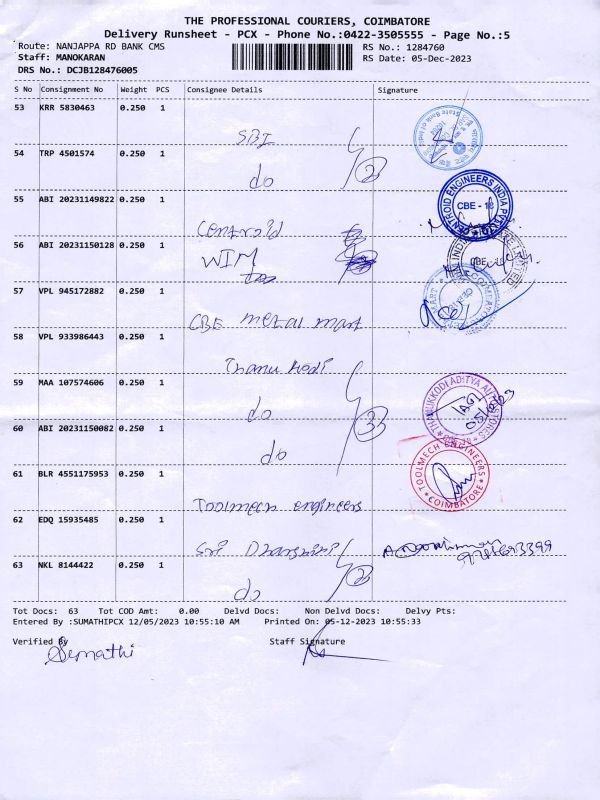 THE PROFESSIONAL COURIERS, COIMBATORE
Delivery Runsheet - PCX - Phone No.:0422-3505555 - Page No.:5
Route: NANJAPPA RD BANK CMS RS No.: 1284760
Staff: MANOKARAN RS Date: 05-Dec-2023
DRS No.: DCJB128476005
S No Consignment No Weight PCS Consignee Details Signature
53 KRR 5830463 0.250 1
SBI
54 TRP 4501574 0.250 1
do 2
55 ABI 20231149822 0.250 1
CENTROID ENGINEERS INDIA PVT
CBE - 18
Centroid
56 ABI 20231150128 0.250 1
WIM
CBE
57 VPL 945172882 0.250 1
CBE metal mart
58 VPL 933986443 0.250 1
Thanu kodi
59 MAA 107574606 0.250 1
THANUKKODI ADITYA AUTO STORES
do 3
60 ABI 20231150082 0.250 1
do
61 BLR 4551175953 0.250 1
TOOLMECH ENGINEERS
COIMBATORE
Toolmech engineers
62 EDQ 15935485 0.250 1
Sri
63 NKL 8144422 0.250 1
do 2
Tot Docs: 63 Tot COD Amt: 0.00 Delvd Docs: Non Delvd Docs: Delvy Pts:
Entered By :SUMATHIPCX 12/05/2023 10:55:10 AM Printed On: 05-12-2023 10:55:33
Verified By Staff Signature
Sumathi